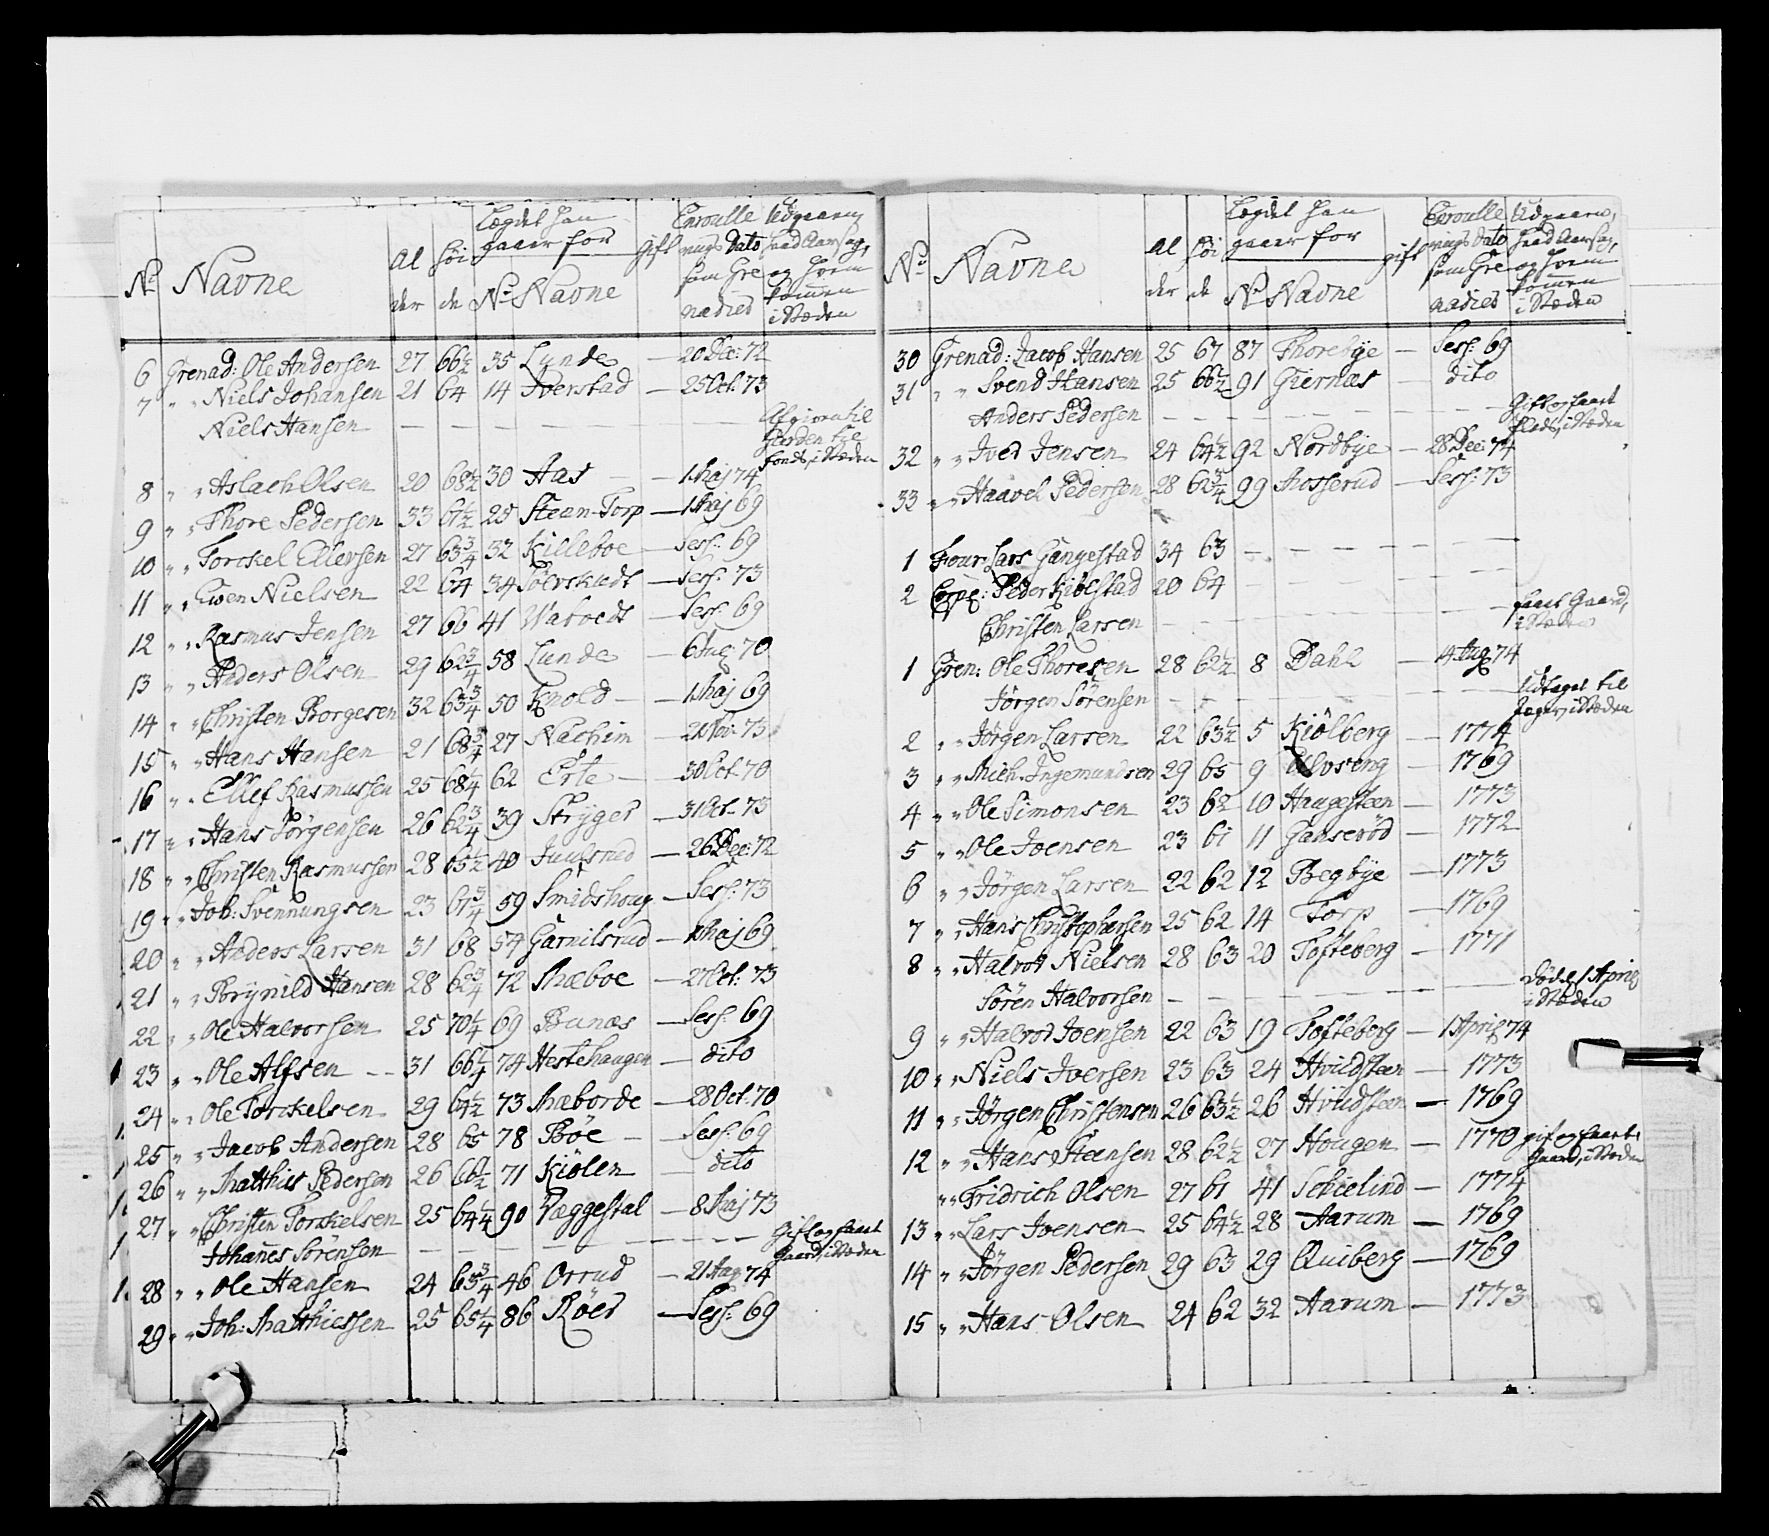 No Navne Alder Höide Lægdet han gaaer for No Navne Gift Enroullerings Dato som Grenadier Udgaaen, hvad Aarsag, og hvem kommen i Steden
6 Grenad: Ole Andersen 27 66½ 35 Lunde — 20 Dec: 72
7 " " Niels Johansen 21 64 14 Tverstad — 25 Oct: 73
Niels Hansen — — — Afgiven til Garden
8 " " Aslach Olsen 20 68½ 30 Aas — 1 Maj 74
9 " " Thore Pedersen 33 61½ 25 Steen-Torp — 1 Maj 69
10 " " Torckel Ellevsen 27 63¾ 32 Killeboe — Sess: 69
11 " " Swen Nielsen 22 64 34 — Sess: 73
12 " " Rasmus Jensen 27 66 41 — Sess: 69
13 " " Anders Olsen 29 62¾ 58 Lunde — 6 Aug: 70
14 " " Christen Borgesen 32 63¾ 50 Knold — 1 Maj 69
15 " " Hans Hansen 21 68¾ 27 Nachim — 73
16 " " Ellef Rasmussen 25 68¼ 62 Erte — 30 Oct: 70
17 " " Hans Jörgensen 26 62¾ 39 Stryger — 31 Oct: 73
18 " " Christen Rasmussen 28 65½ 40 Juulsrud — 26 Dec: 72
19 " " Joh: Svennungsen 23 61¾ 59 Smidshoug — Sess: 73
20 " " Anders Larsen 31 68 54 Garnilsrud — 1 Maj 69
21 " " Brynild Hansen 28 62¾ 72 Mæboe — 27 Oct: 73
22 " " Ole Halvorsen 25 70¼ 69 Bunæs — Sess: 69
23 " " Ole Alfsen 31 66¼ 74 Hestehaugen — dito
24 " " Ole Torckelsen 29 64½ 73 Mæborde — 28 Oct: 70
25 " " Jacob Andersen 28 65 78 Böe — Sess: 69
26 " " Matthis Pedersen 26 66½ 71 Kiölen — dito
27 " " Christen Torckelsen 25 64¼ 90 Ræggestal — 8 Maj 73
Johannes Sörensen — — — Gift og faaet Gaard, i Steden
28 " " Ole Hansen 24 63¾ 46 Orrud — 21 Aug 74
29 " " Joh: Matthiessen 25 65¼ 86 Röer — Sess: 69
No Navne Alder Höide Lægdet han gaaer for No Navne gift Enroullerings Dato som Grenadier Udgaaen, hvad Aarsag, og hvem kommen i Steden
30 Grenad: Jacob Hansen 25 67 87 Thorebye — Sess: 69
31 " " Svend Hansen 25 66½ 91 Giernæs — dito
Anders Pedersen — — — Gift og faaet Plads, i Steden
32 " " Iver Jensen 24 64½ 92 Nordbye — 28 Dec: 74
33 " " Haavel Pedersen 28 62¾ 99 Mosserud — Sess: 73
1 Four: Lars Gangestad 34 63 — — —
2 Corp: Peder Kiölstad 20 64 — — —
Christen Larsen — — — faaet Gaard, i Steden
1 Gren: Ole Thoresen 28 62½ 8 Dahl — 4 Aug 74
Jörgen Sörensen — — — Udtaget til Jæger, i Steden
2 " " Jörgen Larsen 22 63½ 5 Kiölberg — 1774
3 " " Mich. Ingemundsen 29 65 9 Elvseng — 1769
4 " " Ole Simonsen 23 62 10 Haugesteen — 1773
5 " " Ole Joensen 23 61 11 Gansröd — 1772
6 " " Jörgen Larsen 22 62 12 Begbye — 1773
7 " " Hans Christophersen 25 62 14 Torp — 1769
8 " " Halvor Nielsen 28 63 20 Tofteberg — 1771
Sören Halvorsen — — — Död 1 April i Steden
9 " " Halvor Joensen 22 63 19 Tofteberg — 1 April 74
10 " " Niels Iversen 23 63 24 Hvidsteen — 1773
11 " " Jörgen Christensen 26 63½ 26 Hvidsteen — 1769
12 " " Hans Steensen 28 62½ 27 Hougen — 1770 gift og faaet Gaard, i Steden
" " Fridrich Olsen 27 61 41 — 1774
13 " Lars Joensen 25 64½ 28 Aarum — 1769
14 " " Jörgen Pedersen 29 63 29 Quiberg — 1769
15 " " Hans Olsen 24 62 32 Aarum — 1773